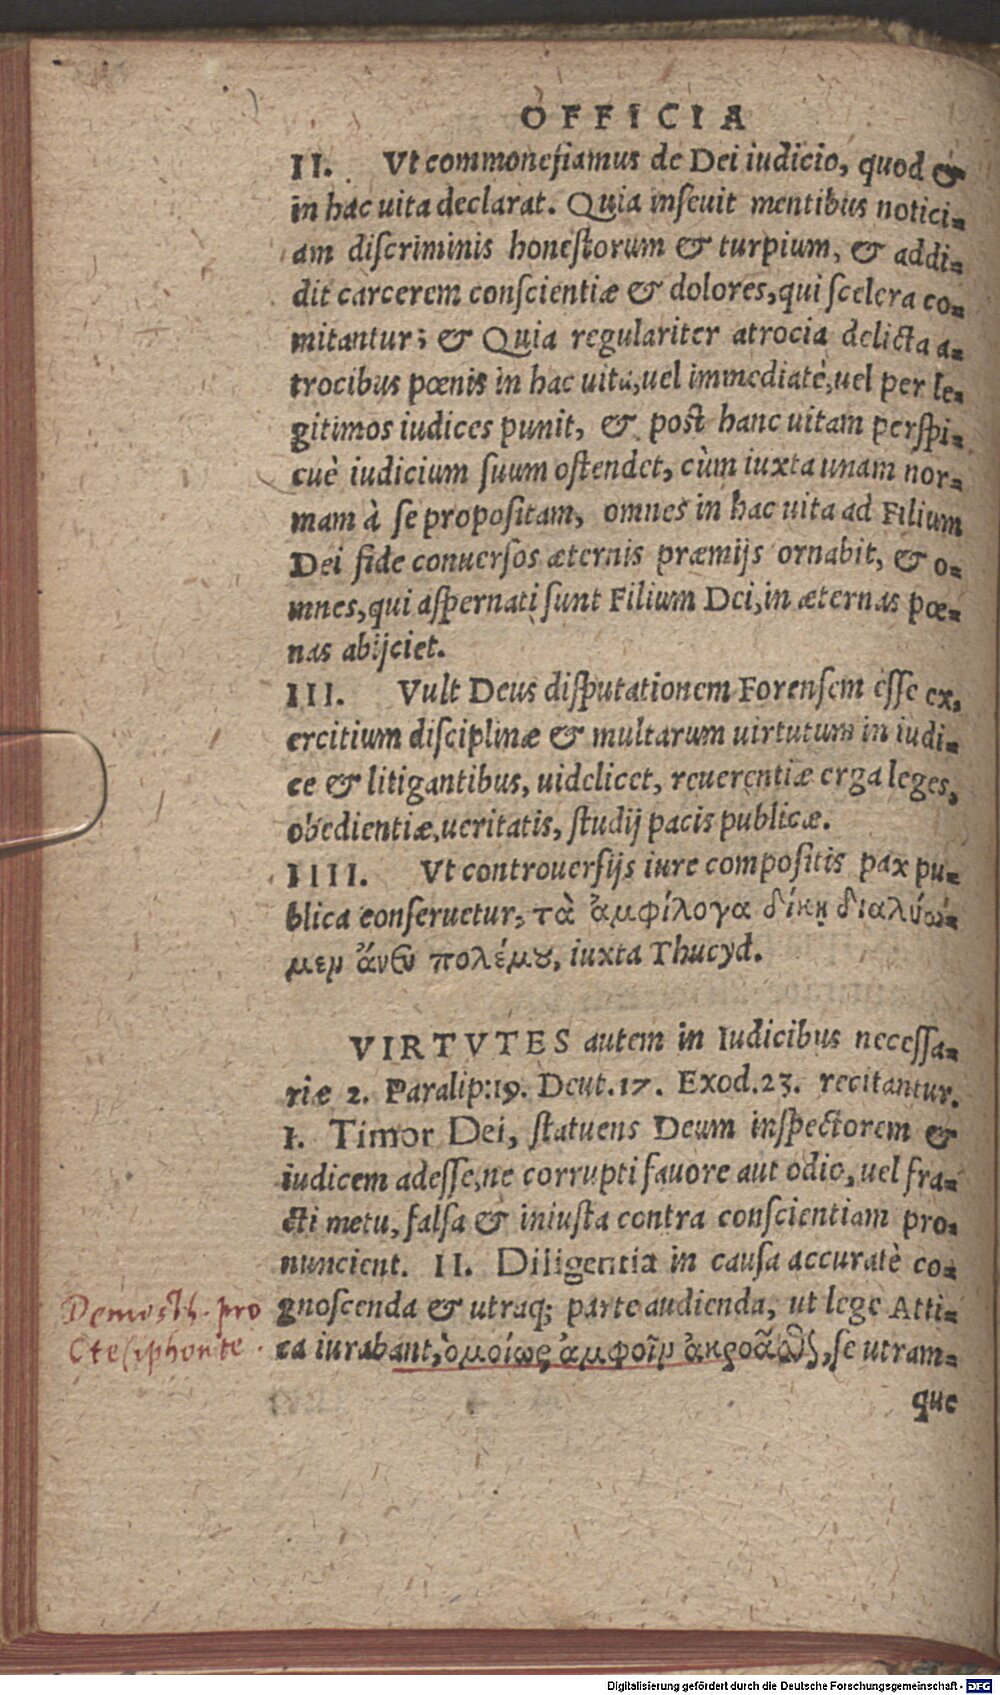 OFFICIA
II. Vt commonefiamus de Dei iudicio, quod &
in hac uita declarat. Quia inseuit mentibus notici-
am discriminis honestorum & turpium, & addi-
dit carcerem conscientiæ & dolores, qui scelera co-
mitantur; & Quia regulariter atrocia delicta a-
trocibus pœnis in hac uita, uel immediatè, uel per le-
gitimos iudices punit, & post hanc uitam perspi-
cuè iudicium suum ostendet, cùm iuxta unam nor-
mam à se propositam, omnes in hac uita ad Filium
Dei fide conuersos æternis præmijs ornabit, & o-
mnes, qui aspernati sunt Filium Dei, in æternas pœ-
nas abijciet.
III. Vult Deus disputationem Forensem esse ex,
ercitium disciplinæ & multarum uirtutum in iudi-
ce & litigantibus, uidelicet, reuerentiæ erga leges,
obedientiæ, ueritatis, studij pacis publicæ.
IIII. Vt controuersijs iure compositis pax pu-
blica conseruetur, τὰ ἀμφίλογα δίκῃ διαλύω-
μεν ἄνευ πολέμου, iuxta Thucyd.
VIRTVTES autem in Iudicibus necessa-
riæ 2. Paralip: 19. Deut. 17. Exod. 23. recitantur.
I. Timor Dei, statuens Deum inspectorem &
iudicem adesse, ne corrupti fauore aut odio, uel fra-
cti metu, falsa & iniusta contra conscientiam pro-
nuncient. II. Diligentia in causa accuratè co-
gnoscenda & utraq; parte audienda, ut lege Atti-
ca iurabant, ὁμοίως ἀμφοῖν ἀκροᾶσθαι, se utram-
que
Demosth. pro
Ctesiphonte.
Digitalisierung gefördert durch die Deutsche Forschungsgemeinschaft - DFG